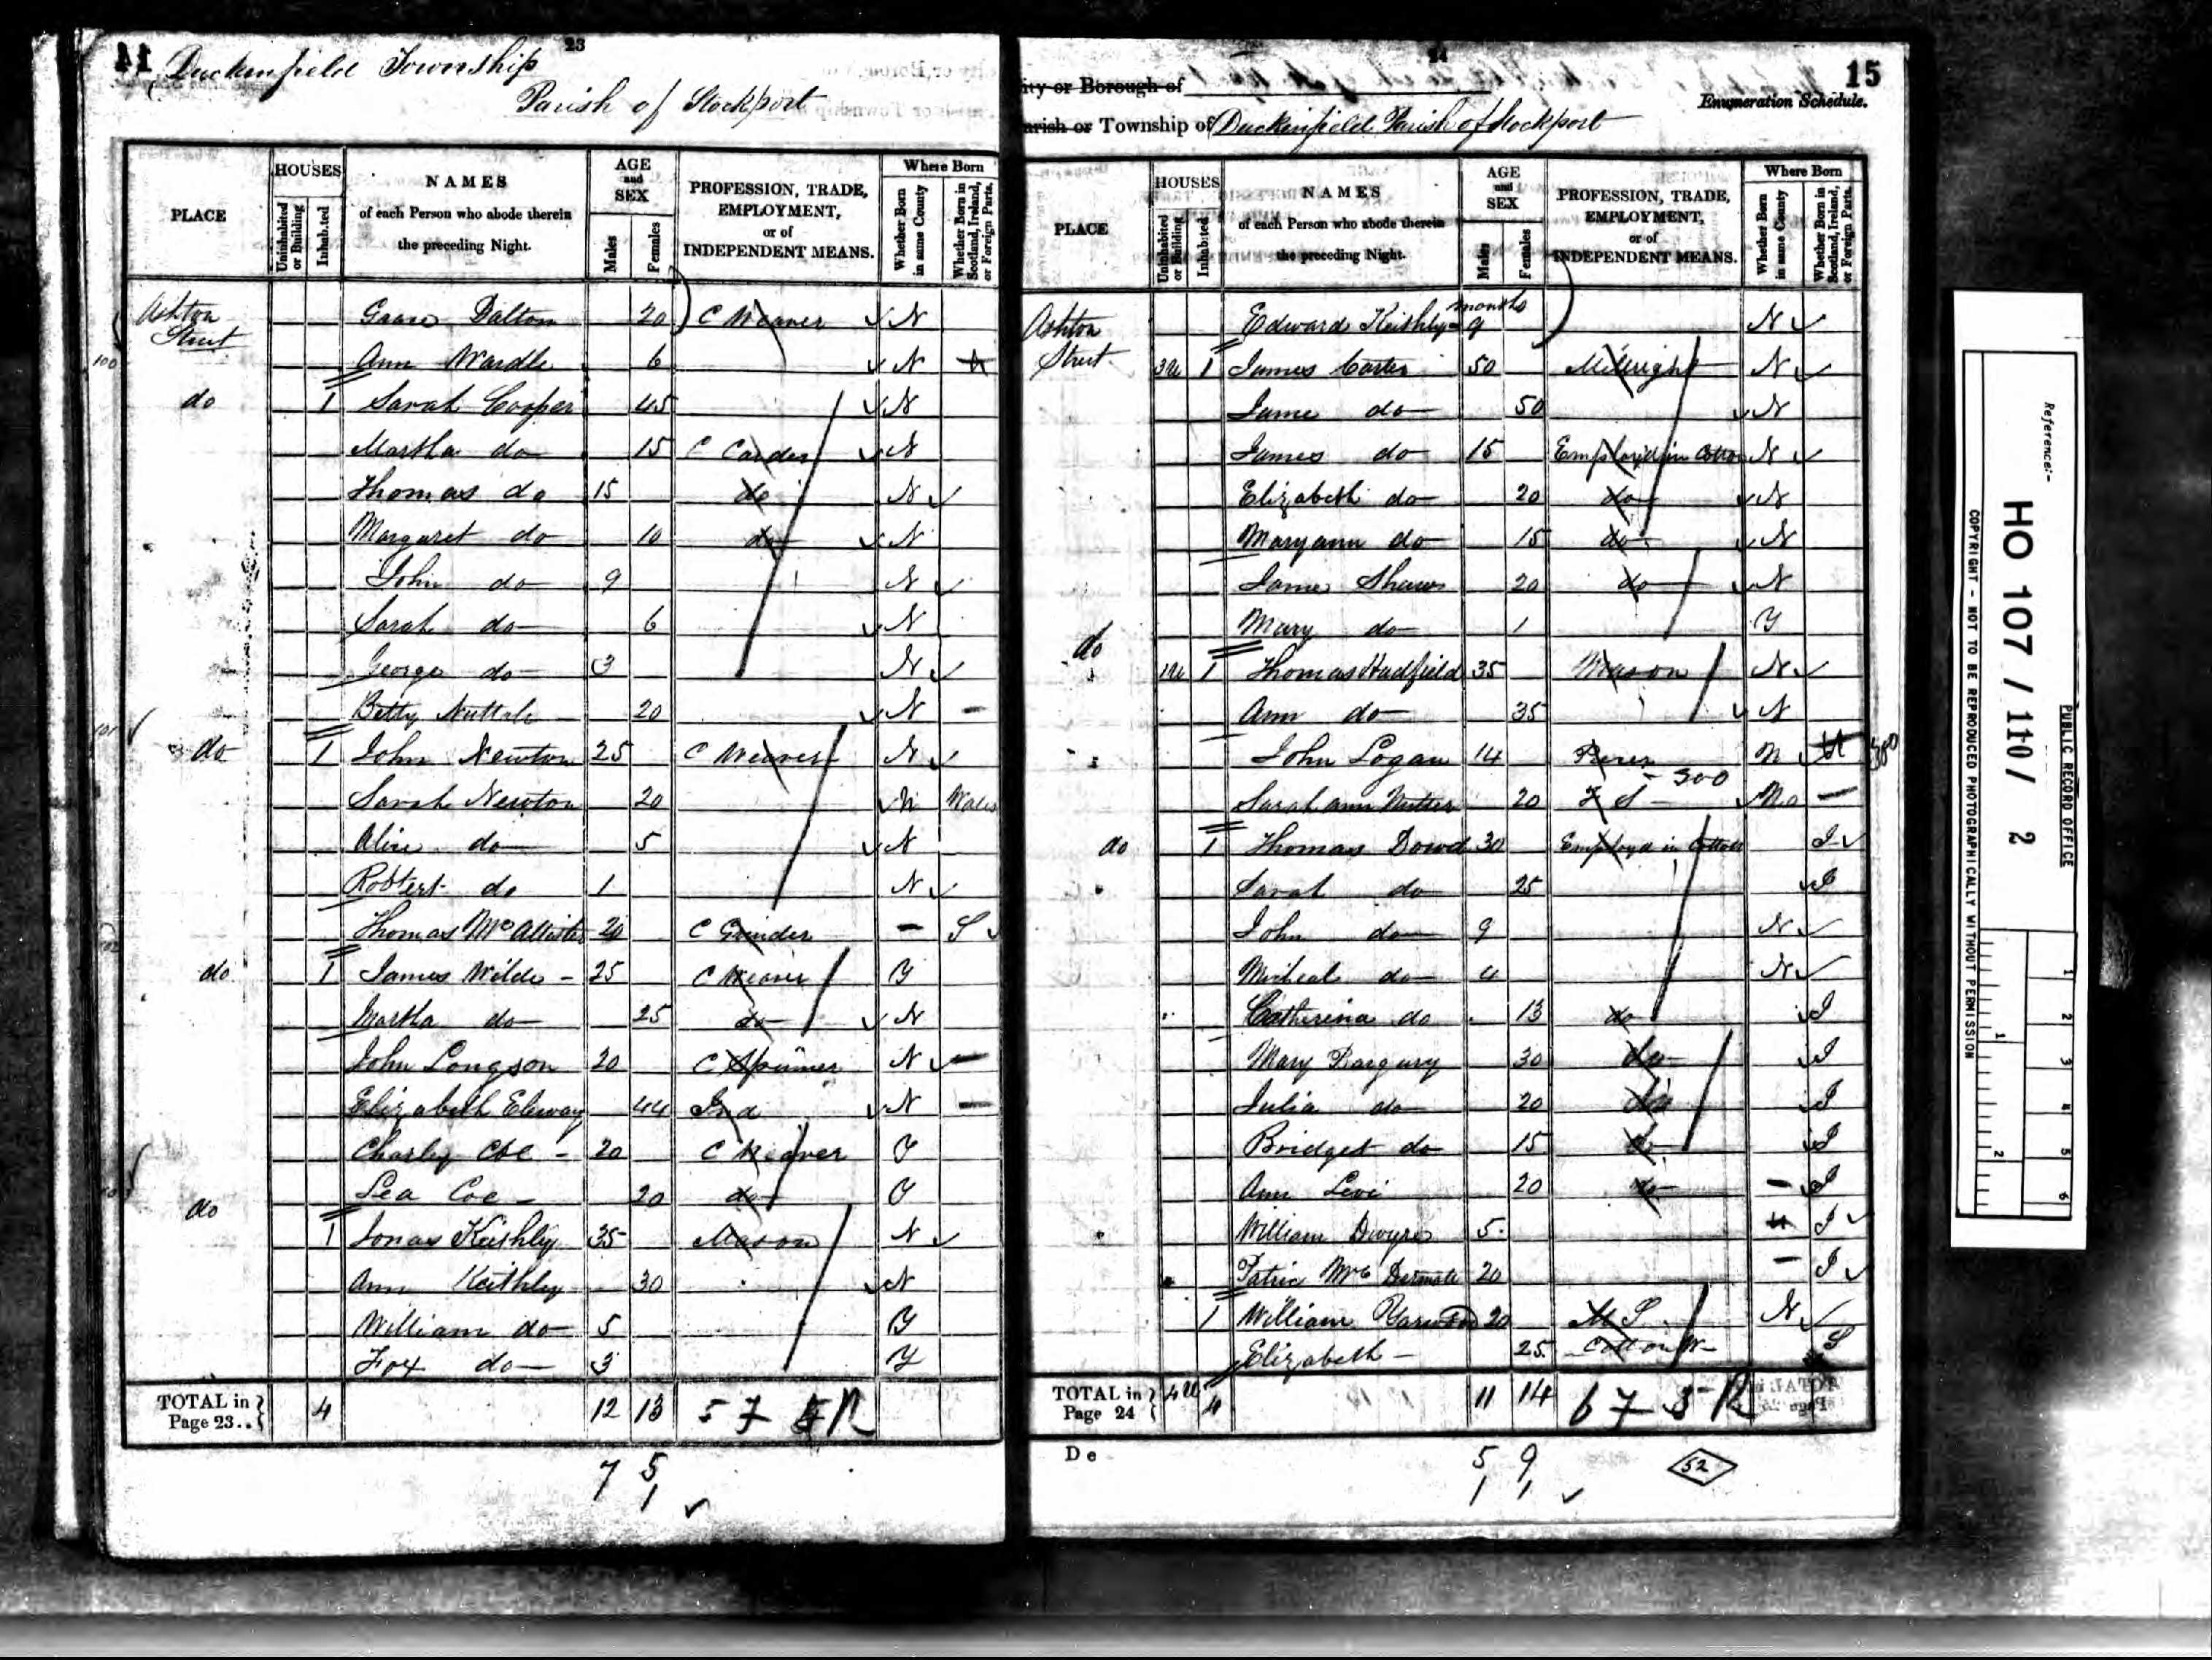 23
Duckenfield Township
Parish of Stockport
PLACE
HOUSES
Uninhabited or Building
Inhabited
NAMES
of each Person who abode therein
the preceding Night.
AGE and SEX
Males
Females
PROFESSION, TRADE, EMPLOYMENT, or of INDEPENDENT MEANS.
Where Born
Whether Born in same County
Whether Born in Scotland, Ireland, or Foreign Parts.
Ashton Street Dalton 20 C Weaver N
100 Ann Wardle 6 N
do 1 Sarah Cooper 45 N
Martha do 15 C Carder N
Thomas do 15 do N
Margaret do 10 do N
John do 9 N
Sarah do 6 N
George do 3 N
Betty 20 N —
101 do 1 John Newton 25 C Weaver N
Sarah Newton 20 N Wales
Alice do 5 N
Robtert do 1 N
Thomas McAllister 20 C Grinder — S
102 do 1 James Wilde - 25 C Weaver Y
Martha do 25 do N
John Longson 20 C Spinner N —
Elizabeth 44 Ind N —
Charley Coe - 20 C Weaver Y
Lea Coe - 20 do Y
do 1 Jonas Keithley 35 Mason N
Ann Keithley 30 N
William do 5 Y
Fox do 3 Y
TOTAL in Page 23.. 4 12 13
7 5
1
24
15
City or Borough of
Enumeration Schedule.
Parish or Township of Duckenfield Parish of Stockport
PLACE
HOUSES
Uninhabited or Building
Inhabited
NAMES
of each Person who abode therein
the preceding Night.
AGE and SEX
Males
Females
PROFESSION, TRADE, EMPLOYMENT, or of INDEPENDENT MEANS.
Where Born
Whether Born in same County
Whether Born in Scotland, Ireland, or Foreign Parts.
Ashton Edward Keithley months 9 N
Street 3U 1 James Carter 50 Millright N
Jame do 50 N
James do 15 Employd in Cotton N
Elizabeth do 20 do N
Maryann do 15 do N
Jame Shaw 20 do N
Mary do 1 Y
do 1U 1 Thomas Hadfield 35 Mason N
Ann do 35 N
John Logan 14 N
Sarah ann 20 F S No —
do 1 Thomas Dowd 30 Employd in Cotton I
Sarah do 25 I
John do 9 N
Micheal do 4 N
Catherina do 13 do I
Mary 30 do I
Julia do 20 do I
Bridget do 15 do I
Ann Levi 20 do — I
William Dwyre 5 I
Patric Mc 20 — I
1 William 20 M S N
Elizabeth - 25 Cotton W S
TOTAL in Page 24 4U 4 11 14
De
5 9
1 1
52
Reference:-
HO 107 / 110 / 2
PUBLIC RECORD OFFICE
COPYRIGHT - NOT TO BE REPRODUCED PHOTOGRAPHICALLY WITHOUT PERMISSION
1 2 3 4 5 6
1 2